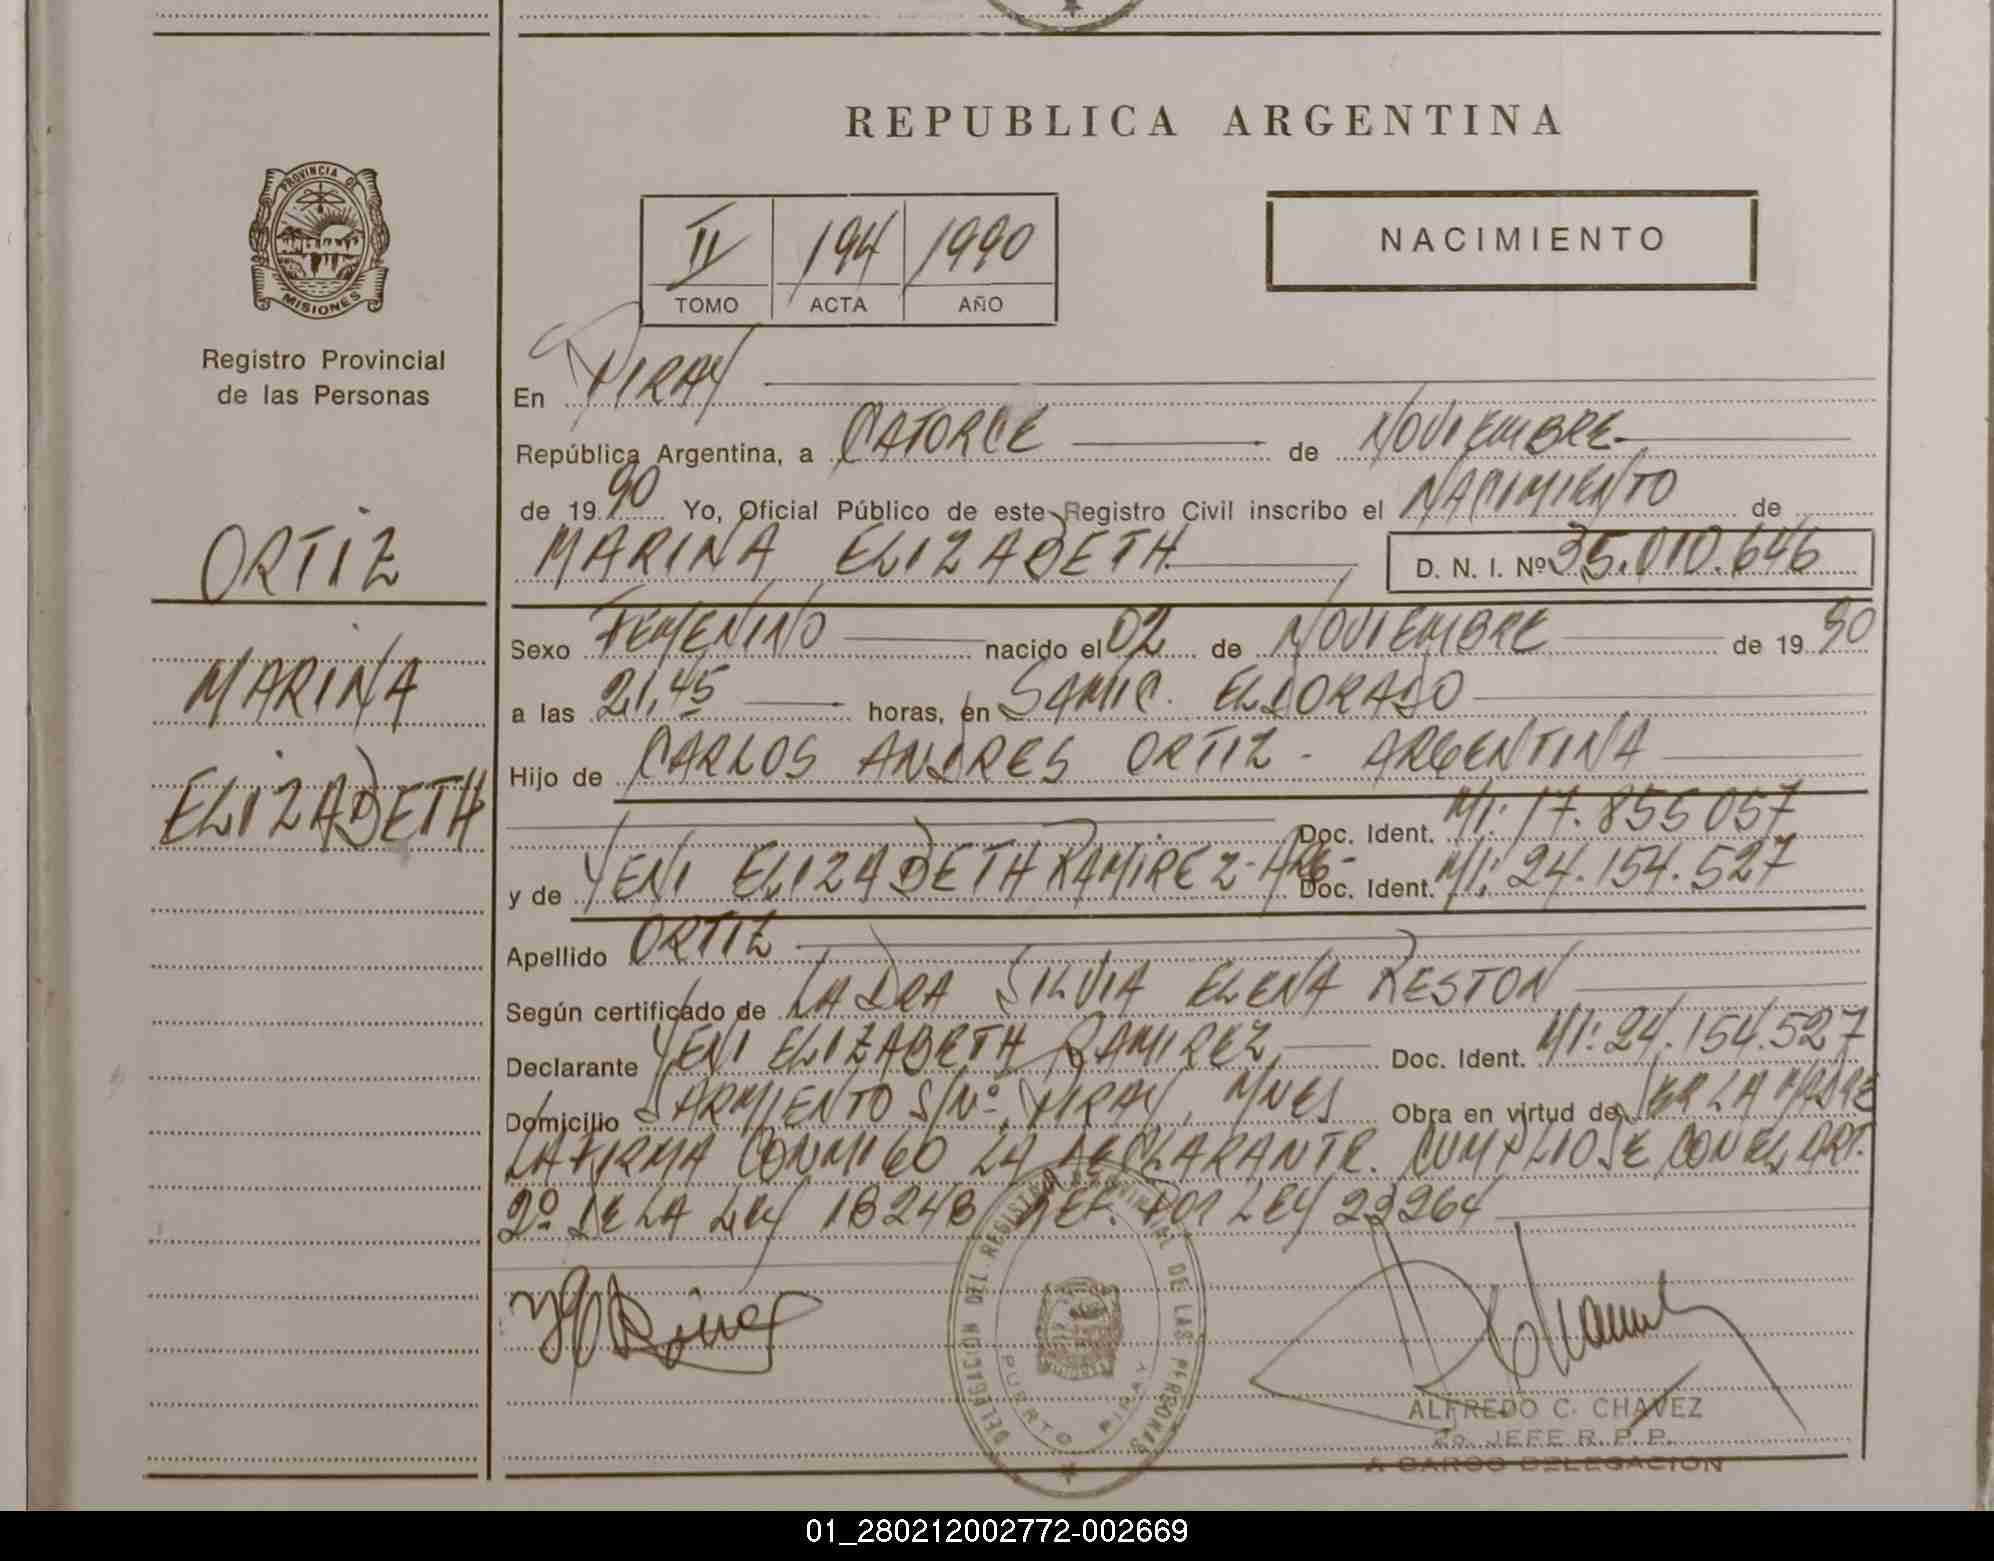 REPUBLICA ARGENTINA
PROVINCIA DE
MISIONES
Registro Provincial
de las Personas
II 194 1990
TOMO ACTA AÑO
NACIMIENTO
ORTIZ
MARINA
ELIZABETH
En PIRAY
República Argentina, a CATORCE de NOVIEMBRE
de 1990 Yo, Oficial Público de este Registro Civil inscribo el NACIMIENTO de
MARINA ELIZABETH D. N. I. Nº 35.010.646
Sexo FEMENINO nacido el 02 de NOVIEMBRE de 1990
a las 21,45 horas, en SAMIC. ELDORADO
Hijo de CARLOS ANDRES ORTIZ - ARGENTINA
Doc. Ident. MI: 17.855057
y de YENI ELIZABETH RAMIREZ - ARG- Doc. Ident. MI: 24.154.527
Apellido ORTIZ
Según certificado de LA DRA SILVIA ELENA RESTON
Declarante YENI ELIZABETH RAMIREZ, Doc. Ident. MI: 24.154.527
Domicilio SARMIENTO S/Nº, PIRAY, MNES Obra en virtud de SER LA MADRE
LA FIRMA CONMIGO LA DECLARANTE. CUMPLIOSE CON EL ART.
2º DE LA LEY 18248 REF. POR LEY 23264
DELEGACION DEL REGISTRO PROVINCIAL DE LAS PERSONAS
PUERTO PIRAY
ALFREDO C. CHAVEZ
2o. JEFE R. P. P.
A CARGO DELEGACION
01_280212002772-002669